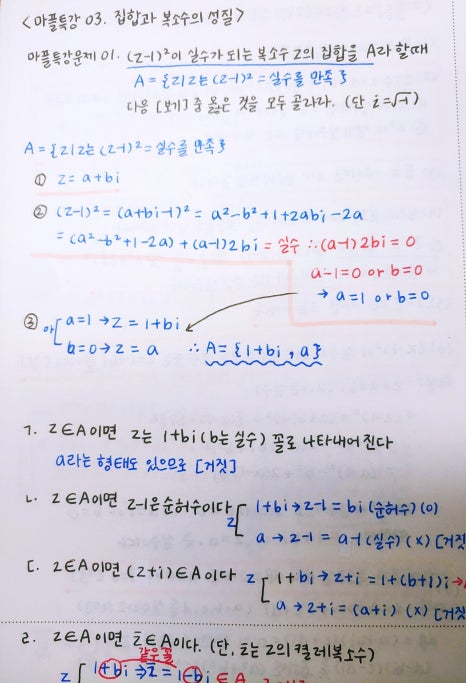 <아플특강 03. 집합과 복소수의 성질>
아플특강문제 01. (z-1)²이 실수가 되는 복소수 z의 집합을 A라 할때
A = {z|z는 (z-1)² = 실수를 만족}
다음 [보기] 중 옳은 것을 모두 골라라. (단 i=√-1)
A = {z|z는 (z-1)² = 실수를 만족}
① z = a+bi
② (z-1)² = (a+bi-1)² = a²-b²+1+2abi-2a
= (a²-b²+1-2a) + (a-1)2bi = 실수 ∴(a-1)2bi = 0
a-1=0 or b=0
→ a=1 or b=0
③ a=1 → z = 1+bi
b=0 → z = a ∴ A = {1+bi, a}
ㄱ. z∈A이면 z는 1+bi (b는 실수) 꼴로 나타내어진다
a라는 형태도 있으므로 [거짓]
ㄴ. z∈A이면 z-1은 순허수이다 z 1+bi → z-1 = bi (순허수) (o)
a → z-1 = a-1 (실수) (x) [거짓
ㄷ. z∈A이면 (z+i)∈A이다 z 1+bi → z+i = 1+(b+1)i →
a → z+i = (a+i) (x) [거짓
ㄹ. z∈A이면 z̄∈A이다. (단, z̄는 z의 켤레복소수)
같은꼴
z 1+bi ⇒ z̄ = 1-bi ∈ A